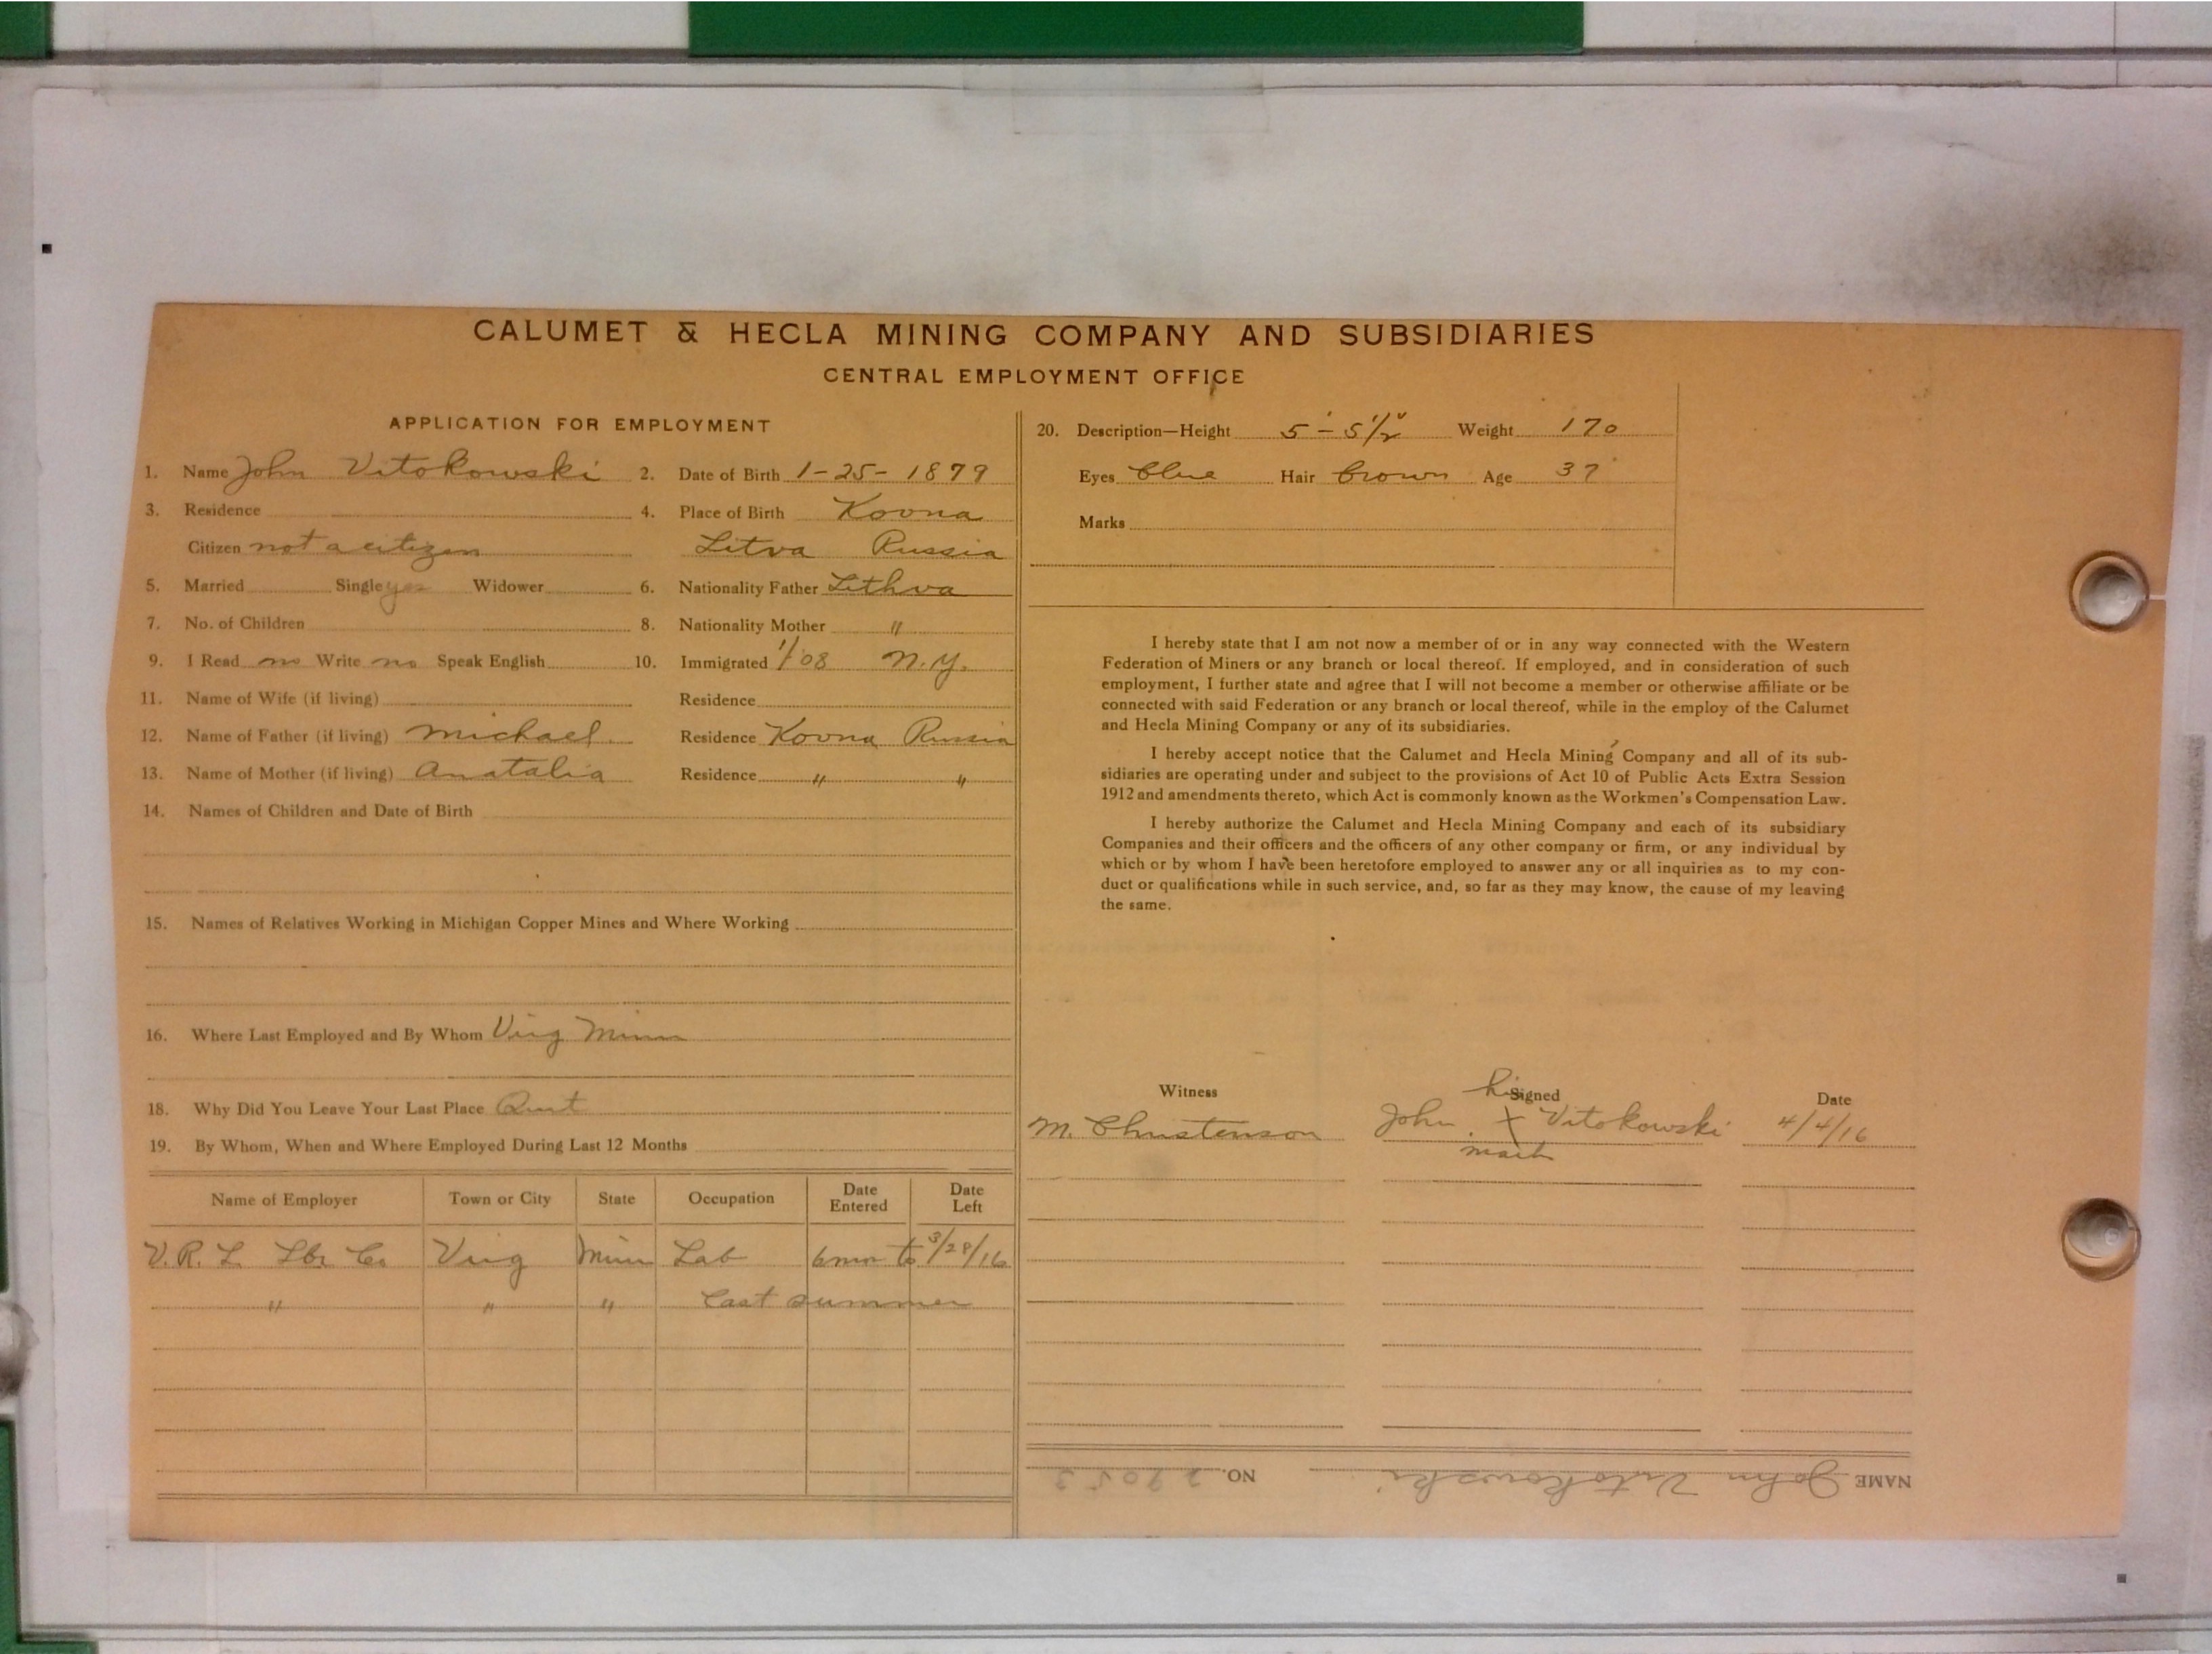 CALUMET & HECLA MINING COMPANY AND SUBSIDIARIES
CENTRAL EMPLOYMENT OFFICE
APPLICATION FOR EMPLOYMENT
1. Name John Vitokowski 2. Date of Birth 1-25-1879
3. Residence 4. Place of Birth Kovna
Citizen not a citizen Litva Russia
5. Married Single yes Widower 6. Nationality Father Lithva
7. No. of Children 8. Nationality Mother "
9. I Read no Write no Speak English 10. Immigrated 1/08 N.Y.
11. Name of Wife (if living) Residence
12. Name of Father (if living) Michael Residence Kovna Russia
13. Name of Mother (if living) Anatalia Residence " "
14. Names of Children and Date of Birth
15. Names of Relatives Working in Michigan Copper Mines and Where Working
16. Where Last Employed and By Whom Virg Minn
18. Why Did You Leave Your Last Place Quit
19. By Whom, When and Where Employed During Last 12 Months
Name of Employer Town or City State Occupation Date Entered Date Left
V. R. L. Lbr Co Virg Minn Lab 6 mon to 3/28/16
" " " Last summer
20. Description—Height 5'-5 1/2" Weight 170
Eyes blue Hair brown Age 37
Marks
I hereby state that I am not now a member of or in any way connected with the Western
Federation of Miners or any branch or local thereof. If employed, and in consideration of such
employment, I further state and agree that I will not become a member or otherwise affiliate or be
connected with said Federation or any branch or local thereof, while in the employ of the Calumet
and Hecla Mining Company or any of its subsidiaries.
I hereby accept notice that the Calumet and Hecla Mining Company and all of its sub-
sidiaries are operating under and subject to the provisions of Act 10 of Public Acts Extra Session
1912 and amendments thereto, which Act is commonly known as the Workmen's Compensation Law.
I hereby authorize the Calumet and Hecla Mining Company and each of its subsidiary
Companies and their officers and the officers of any other company or firm, or any individual by
which or by whom I have been heretofore employed to answer any or all inquiries as to my con-
duct or qualifications while in such service, and, so far as they may know, the cause of my leaving
the same.
Witness his Signed Date
M. Christenson John X Vitokowski 4/4/16
mark
NAME John Vitokowski NO. 29053